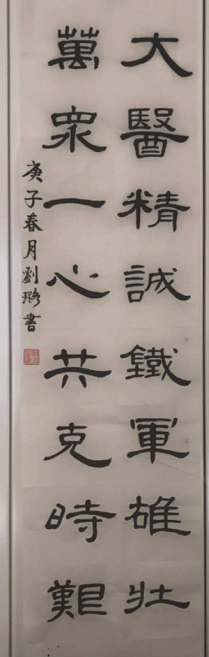 大醫精誠鐵軍雄壯
萬眾一心共克時艱
庚子春月劉璐書